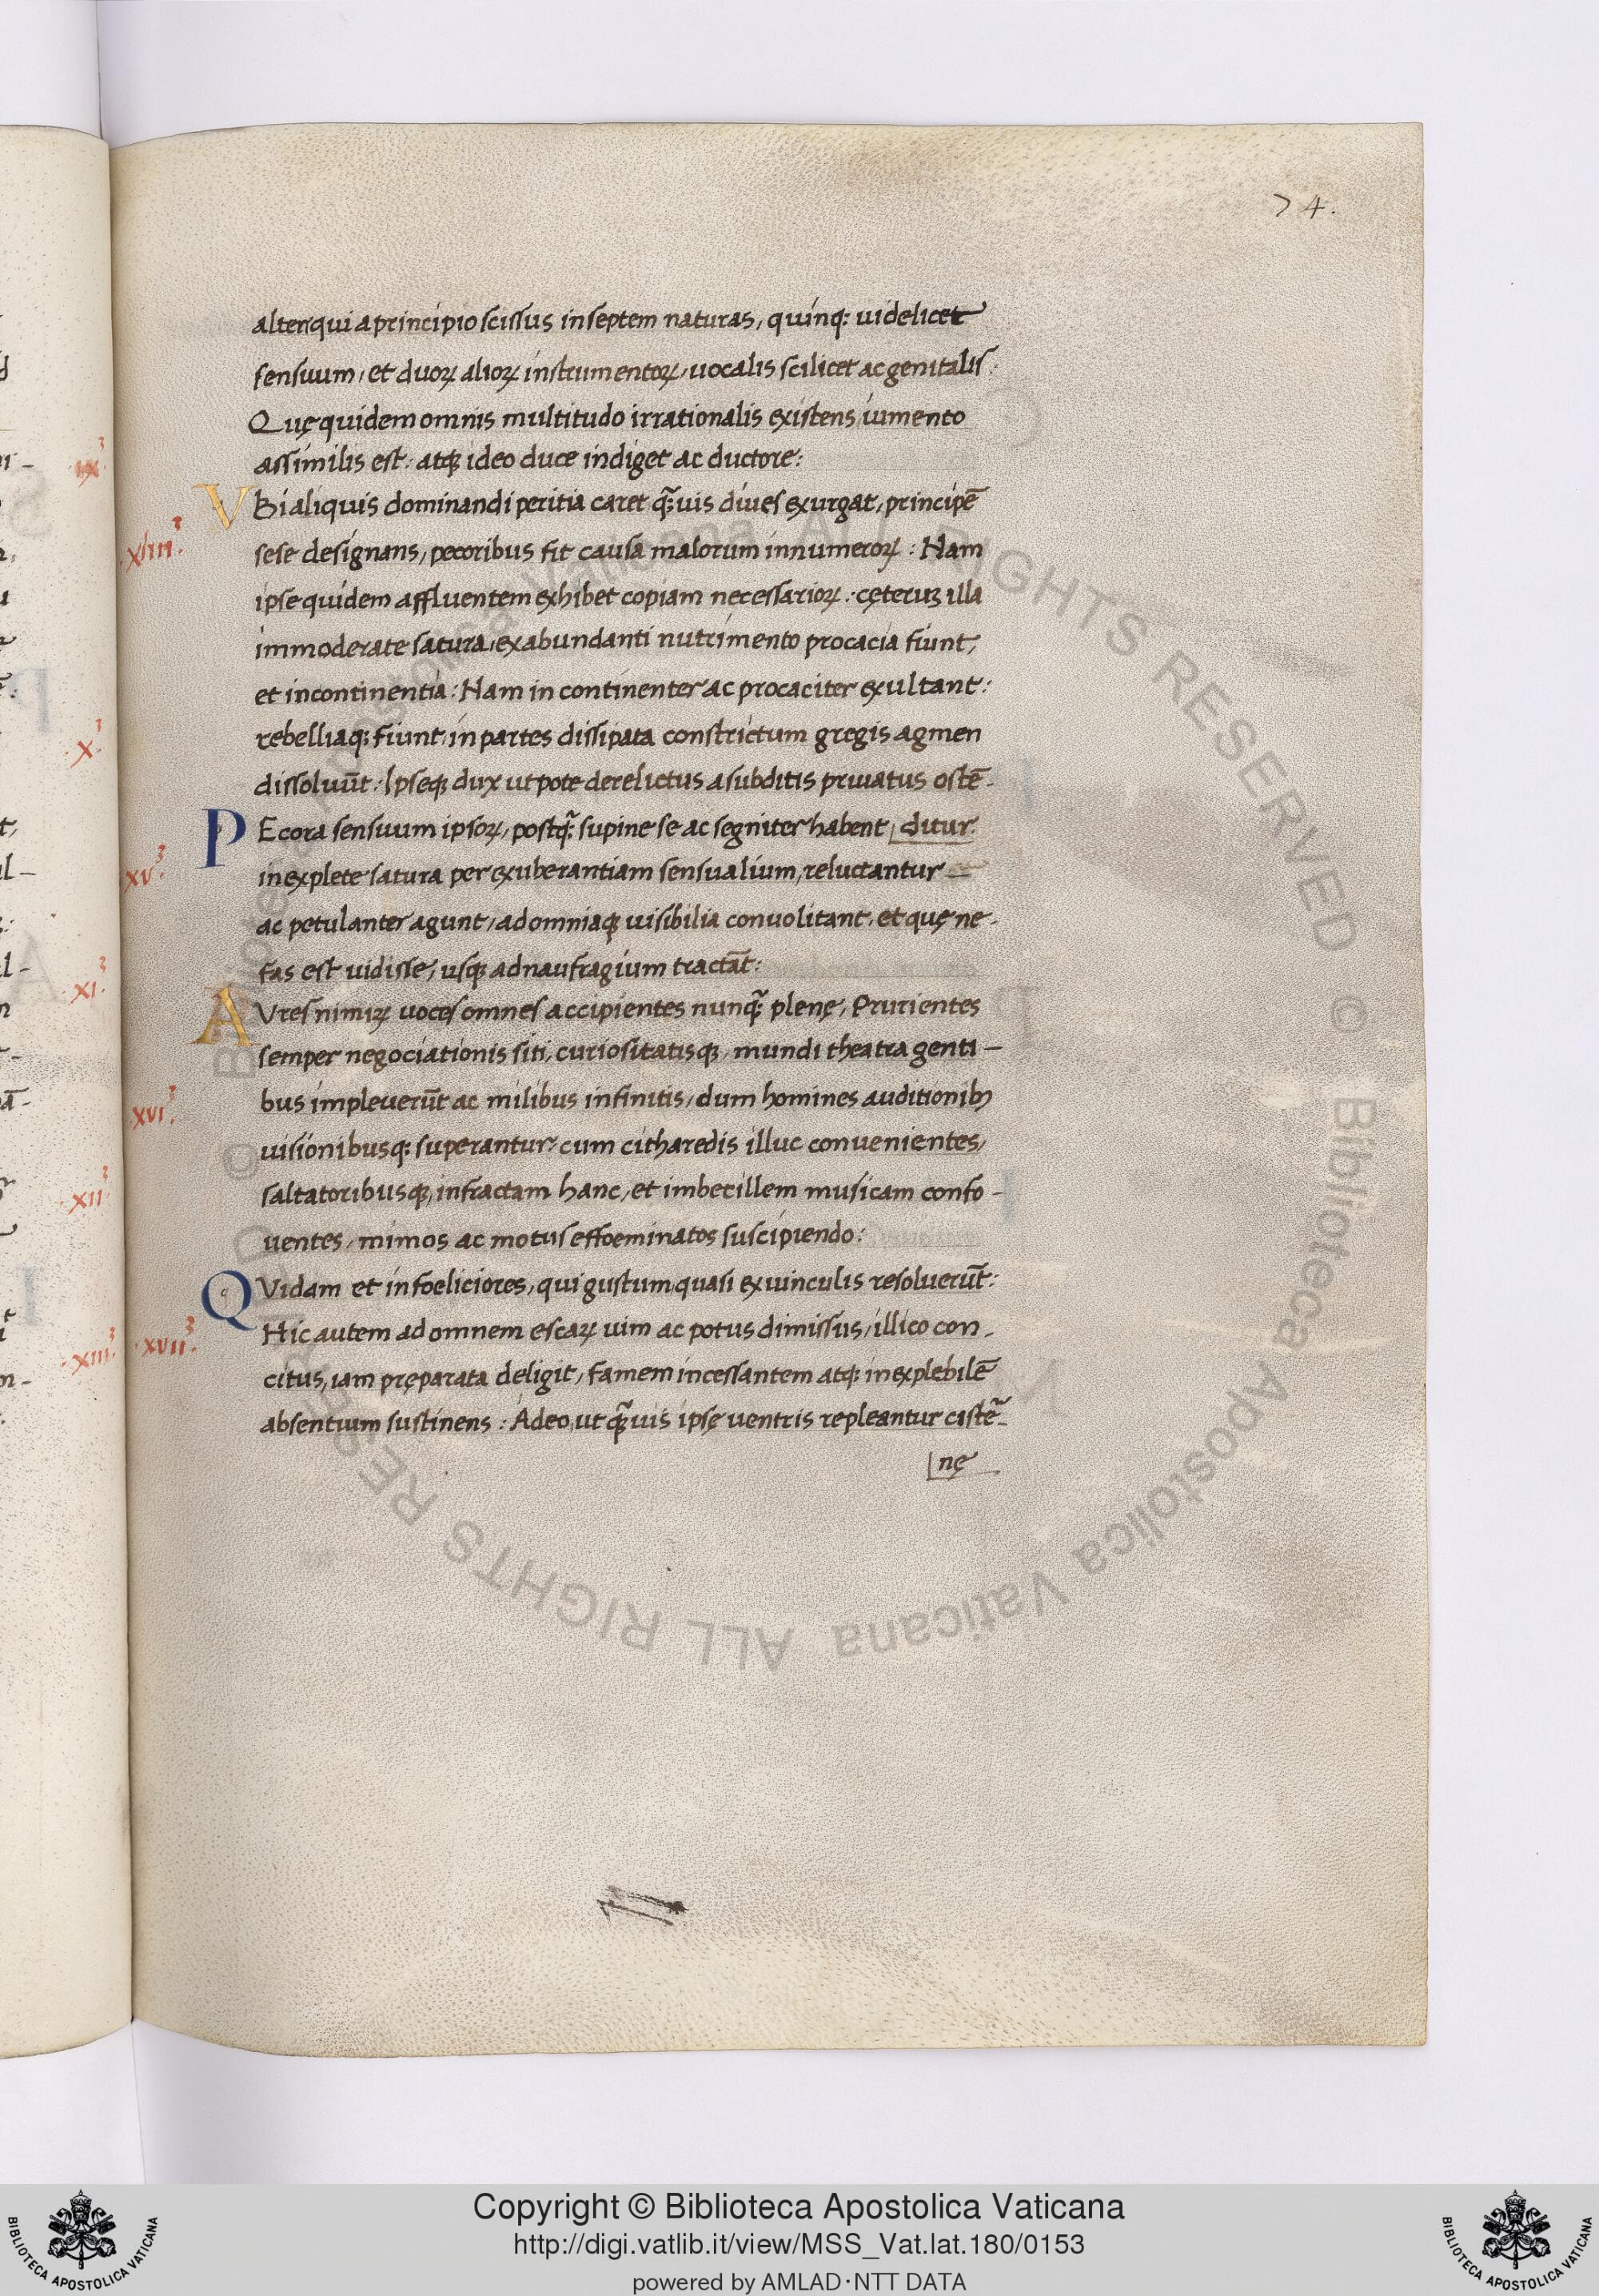 74.
alter, qui a principio scissus in septem naturas, quinq: uidelicet
sensuum, et duoꝝ alioꝝ instrumentoꝝ, uocalis scilicet ac genitalis:
Quę quidem omnis multitudo irrationalis existens iumento
assimilis est: atqꝫ ideo duce indiget ac ductore:
xiiii.
VBi aliquis dominandi peritia caret q̃uis diues exurgat, principẽ
sese designans, pecoribus fit causa malorum innumeroꝝ: Nam
ipse quidem affluentem exhibet copiam necessarioꝝ: cęteruꝫ illa
immoderate satura, ex abundanti nutrimento procacia fiunt,
et incontinentia: Nam incontinenter ac procaciter exultant:
rebelliaq: fiunt, in partes dissipata constrictum gregis agmen
dissoluũt: Ipseqꝫ dux utpote derelictus a subditis priuatus ostẽ-
xv.
PEcora sensuum ipsoꝝ, postq̃ supine se ac segniter habent [ditur.
inexplete satura per exuberantiam sensualium, reluctantur
ac petulanter agunt, ad omniaqꝫ uisibilia conuolitant, et quę ne-
fas est uidisse, usqꝫ ad naufragium tractãt:
AVres nimiꝝ uoces omnes accipientes nunq̃ plenę, Prurientes
semper negociationis siti, curiositatisqꝫ, mundi theatra genti-
xvi.
bus impleuerũt ac milibus infinitis, dum homines auditionibꝫ
uisionibusq: superantur, cum citharedis illuc conuenientes,
saltatoribusqꝫ, infractam hanc, et imbecillem musicam confo-
uentes, mimos ac motus effoeminatos suscipiendo:
QVidam et infoeliciores, qui gustum quasi ex uinculis resoluerũt:
xvii.
Hic autem ad omnem escaꝝ uim ac potus dimissus, illico con-
citus, iam pręparata deligit, famem incessantem atqꝫ inexplebilẽ
absentium sustinens: Adeo, ut q̃uis ipsę uentris repleantur cistẽ-
[nę
ix
x.
xi.
xii
xiii.
© Biblioteca Apostolica Vaticana ALL RIGHTS RESERVED © Biblioteca Apostolica Vaticana ALL RIGHTS RESERVED
Copyright © Biblioteca Apostolica Vaticana
http://digi.vatlib.it/view/MSS_Vat.lat.180/0153
powered by AMLAD·NTT DATA
BIBLIOTECA APOSTOLICA VATICANA
BIBLIOTECA APOSTOLICA VATICANA